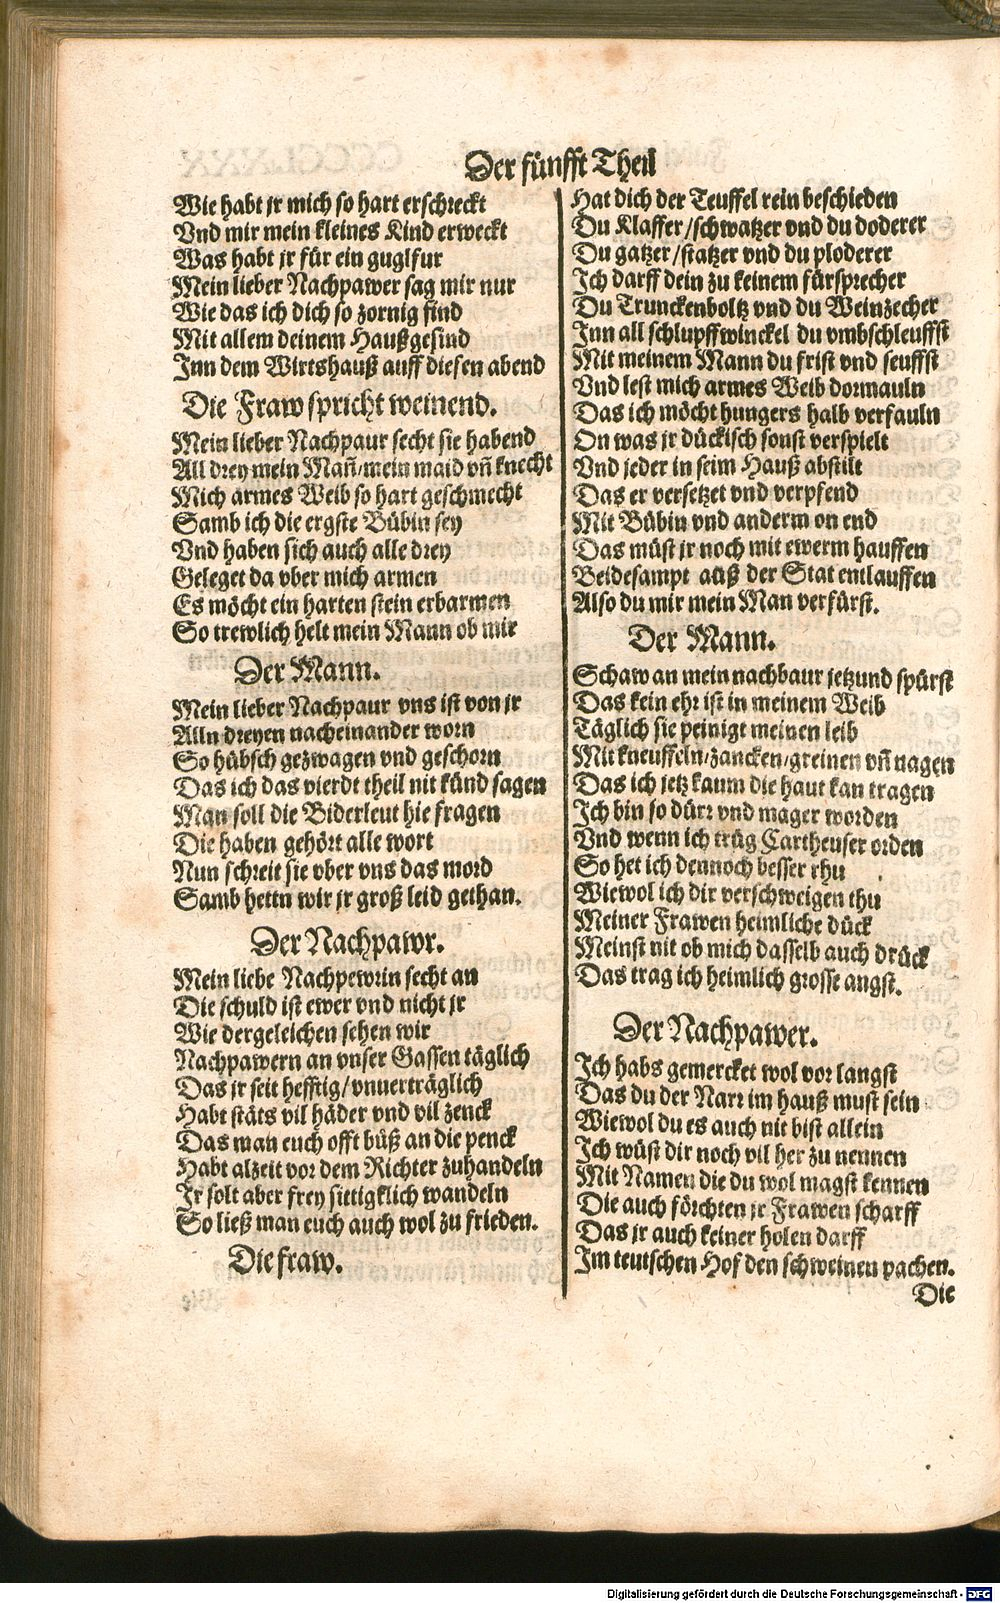 Der fünfft Theil
Wie habt jr mich so hart erschreckt
Vnd mir mein kleines Kind erweckt
Was habt jr für ein guglfur
Mein lieber Nachpawer sag mir nur
Wie das ich dich so zornig find
Mit allem deinem Haußgesind
Inn dem Wirtshauß auff diesen abend
Die Fraw spricht weinend.
Mein lieber Nachpaur secht sie habend
All drey mein Mañ/mein maid vñ knecht
Mich armes Weib so hart geschmecht
Samb ich die ergste Bübin sey
Vnd haben sich auch alle drey
Geleget da vber mich armen
Es möcht ein harten stein erbarmen
So trewlich helt mein Mann ob mir
Der Mann.
Mein lieber Nachpaur vns ist von jr
Alln dreyen nacheinander worn
So hübsch gezwagen vnd geschorn
Das ich das vierdt theil nit künd sagen
Man soll die Biderleut hie fragen
Die haben gehört alle wort
Nun schreit sie vber vns das mord
Samb hettn wir jr groß leid gethan.
Der Nachpawr.
Mein liebe Nachpewrin secht an
Die schuld ist ewer vnd nicht jr
Wie dergeleichen sehen wir
Nachpawern an vnser Gassen täglich
Das jr seit hefftig/vnuerträglich
Habt stäts vil häder vnd vil zenck
Das man euch offt büß an die penck
Habt alzeit vor dem Richter zuhandeln
Ir solt aber frey sittigklich wandeln
So ließ man euch auch wol zu frieden.
Die fraw.
Hat dich der Teuffel rein beschieden
Du Klaffer/schwatzer vnd du doderer
Du gatzer/statzer vnd du ploderer
Ich darff dein zu keinem fürsprecher
Du Trunckenboltz vnd du Weinzecher
Inn all schlupffwinckel du vmbschleuffst
Mit meinem Mann du frist vnd seuffst
Vnd lest mich armes Weib dormauln
Das ich möcht hungers halb verfauln
On was jr dückisch sonst verspielt
Vnd jeder in seim Hauß abstilt
Das er versetzet vnd verpfend
Mit Bübin vnd anderm on end
Das müst jr noch mit ewerm hauffen
Beidesampt auß der Stat entlauffen
Also du mir mein Man verfürst.
Der Mann.
Schaw an mein nachbaur jetzund spürst
Das kein ehr ist in meinem Weib
Täglich sie peinigt meinen leib
Mit kneuffeln/zancken/greinen vñ nagen
Das ich jetz kaum die haut kan tragen
Ich bin so dürr vnd mager worden
Vnd wenn ich trüg Cartheuser orden
So het ich dennoch besser rhu
Wiewol ich dir verschweigen thu
Meiner Frawen heimliche dück
Meinst nit ob mich dasselb auch drück
Das trag ich heimlich grosse angst.
Der Nachpawer.
Ich habs gemercket wol vor langst
Das du der Narr im hauß must sein
Wiewol du es auch nit bist allein
Ich wüst dir noch vil her zu nennen
Mit Namen die du wol magst kennen
Die auch förchten jr Frawen scharff
Das jr auch keiner holen darff
Im teutschen Hof den schweinen pachen.
Die
Digitalisierung gefördert durch die Deutsche Forschungsgemeinschaft - DFG